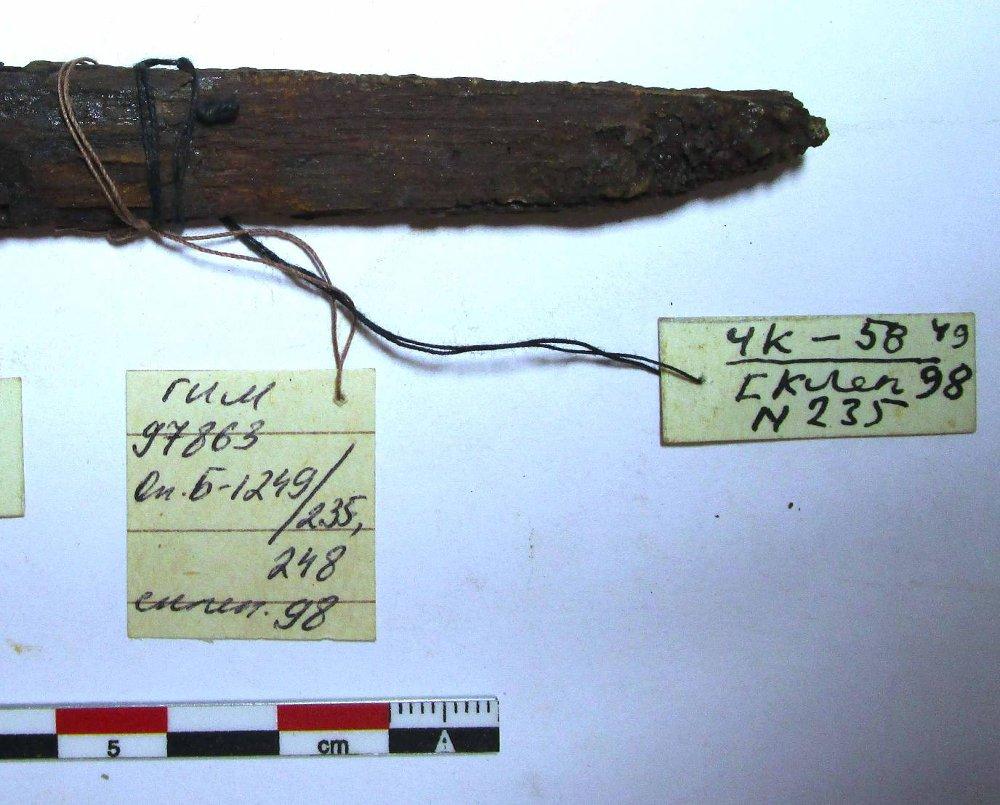 ГИМ
97863
Оп. Б-1249/
235,
248
склеп. 98
ЧК - 58 49
Склеп 98
N 235
5 cm